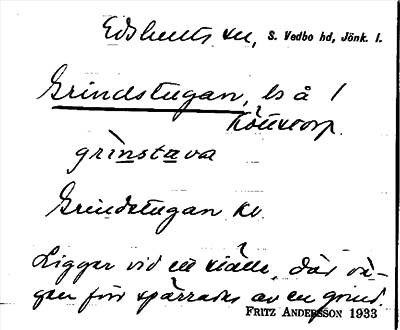 Edshults sn, S. Vedbo hd, Jönk. l.
Grindstugan, ls å 1
Köttorp.
grinstava
Grindstugan kv.
Ligger vid ett ställe, där vä-
gen förr spärrades av en grind.
FRITZ ANDERSSON 1933